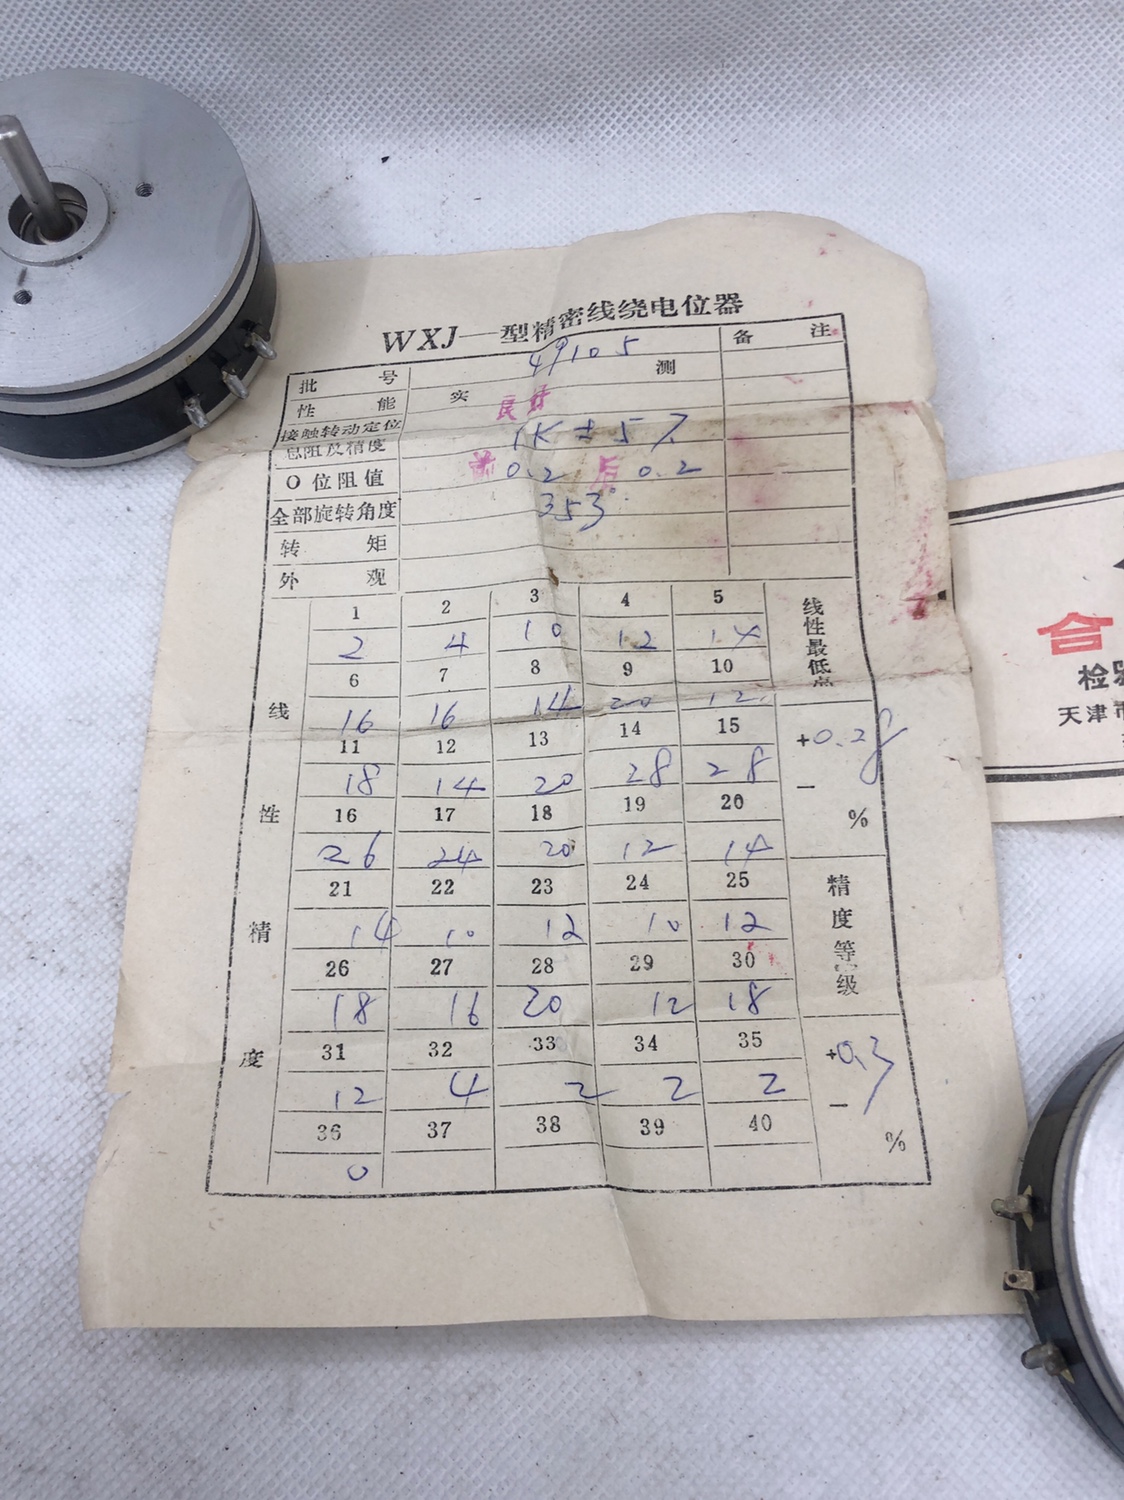 WXJ—型精密线绕电位器
批号 49105 备注
性能 实测
接触转动定位 良好
总阻及精度 1K±5%
O位阻值 前 0.2 后 0.2
全部旋转角度 353°
转矩
外观
线性精度
1 2 3 4 5 线性最低点
2 4 10 12 14
6 7 8 9 10
16 16 14 20 12
11 12 13 14 15 +0.28
18 14 20 28 28 −
16 17 18 19 20 %
26 24 20 12 14
21 22 23 24 25 精度等级
14 10 12 10 12
26 27 28 29 30
18 16 20 12 18
31 32 33 34 35 +0.3
12 4 2 2 2 −
36 37 38 39 40 %
0
合
检验
天津市